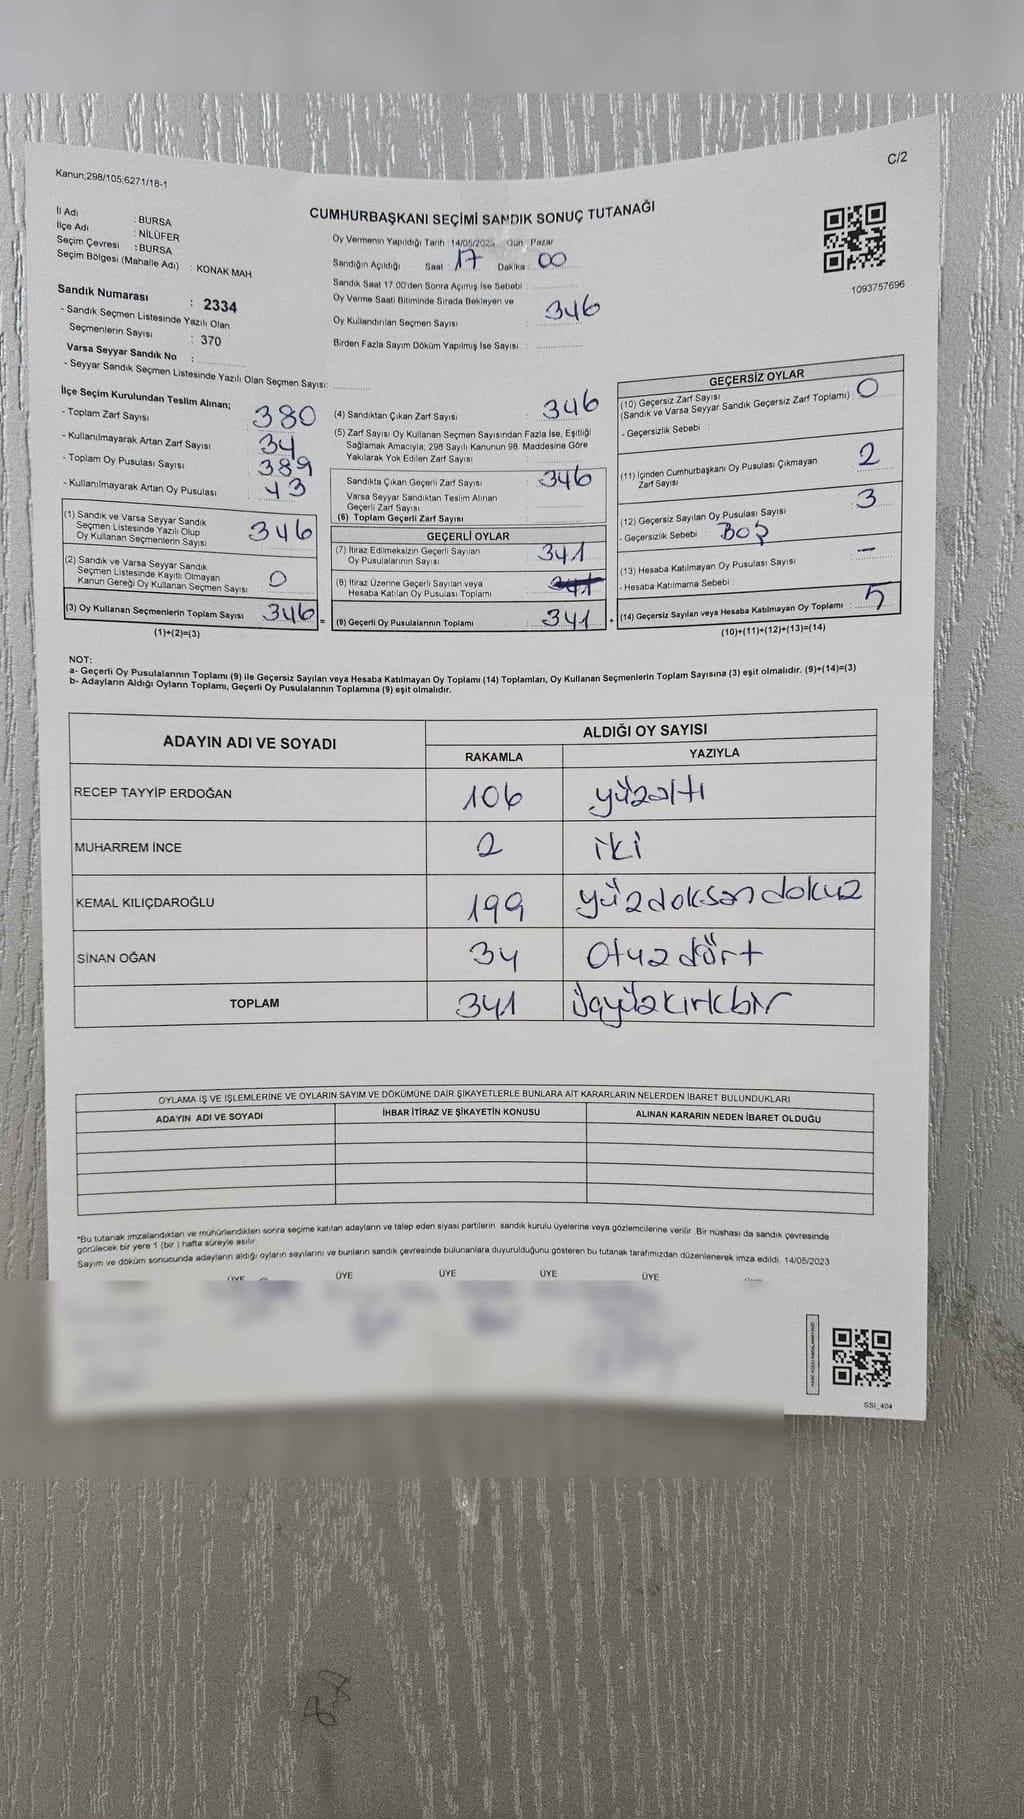 C/2
Kanun;298/105;6271/18-1
CUMHURBAŞKANI SEÇİMİ SANDIK SONUÇ TUTANAĞI
İl Adı : BURSA
İlçe Adı : NİLÜFER
Seçim Çevresi : BURSA
Seçim Bölgesi (Mahalle Adı) : KONAK MAH.
Sandık Numarası : 2334
- Sandık Seçmen Listesinde Yazılı Olan
Seçmenlerin Sayısı : 370
Varsa Seyyar Sandık No :
- Seyyar Sandık Seçmen Listesinde Yazılı Olan Seçmen Sayısı:
Oy Vermenin Yapıldığı Tarih : 14/05/2023 Gün : Pazar
Sandığın Açıldığı Saat : 17 Dakika : 00
Sandık Saat 17.00'den Sonra Açımış İse Sebebi :
Oy Verme Saati Bitiminde Sırada Bekleyen ve
Oy Kullandırılan Seçmen Sayısı : 346
Birden Fazla Sayım Döküm Yapılmış İse Sayısı :
1093757696
İlçe Seçim Kurulundan Teslim Alınan;
- Toplam Zarf Sayısı : 380
- Kullanılmayarak Artan Zarf Sayısı : 34
- Toplam Oy Pusulası Sayısı : 389
- Kullanılmayarak Artan Oy Pusulası : 43
(1) Sandık ve Varsa Seyyar Sandık
Seçmen Listesinde Yazılı Olup
Oy Kullanan Seçmenlerin Sayısı : 346
(2) Sandık ve Varsa Seyyar Sandık
Seçmen Listesinde Kayıtlı Olmayan
Kanun Gereği Oy Kullanan Seçmen Sayısı : 0
(3) Oy Kullanan Seçmenlerin Toplam Sayısı : 346 =
(1)+(2)=(3)
(4) Sandıktan Çıkan Zarf Sayısı : 346
(5) Zarf Sayısı Oy Kullanan Seçmen Sayısından Fazla İse, Eşitliği
Sağlamak Amacıyla, 298 Sayılı Kanunun 98. Maddesine Göre
Yakılarak Yok Edilen Zarf Sayısı :
Sandıkta Çıkan Geçerli Zarf Sayısı : 346
Varsa Seyyar Sandıktan Teslim Alınan
Geçerli Zarf Sayısı :
(6) Toplam Geçerli Zarf Sayısı :
GEÇERLİ OYLAR
(7) İtiraz Edilmeksizin Geçerli Sayılan
Oy Pusulalarının Sayısı : 341
(8) İtiraz Üzerine Geçerli Sayılan veya
Hesaba Katılan Oy Pusulası Toplamı :
(9) Geçerli Oy Pusulalarının Toplamı : 341 +
GEÇERSİZ OYLAR
(10) Geçersiz Zarf Sayısı
(Sandık ve Varsa Seyyar Sandık Geçersiz Zarf Toplamı) : 0
- Geçersizlik Sebebi :
(11) İçinden Cumhurbaşkanı Oy Pusulası Çıkmayan
Zarf Sayısı : 2
(12) Geçersiz Sayılan Oy Pusulası Sayısı : 3
- Geçersizlik Sebebi : BOŞ
(13) Hesaba Katılmayan Oy Pusulası Sayısı : –
- Hesaba Katılmama Sebebi :
(14) Geçersiz Sayılan veya Hesaba Katılmayan Oy Toplamı : 5
(10)+(11)+(12)+(13)=(14)
NOT:
a- Geçerli Oy Pusulalarının Toplamı (9) ile Geçersiz Sayılan veya Hesaba Katılmayan Oy Toplamı (14) Toplamları, Oy Kullanan Seçmenlerin Toplam Sayısına (3) eşit olmalıdır. (9)+(14)=(3)
b- Adayların Aldığı Oyların Toplamı, Geçerli Oy Pusulalarının Toplamına (9) eşit olmalıdır.
ADAYIN ADI VE SOYADI
ALDIĞI OY SAYISI
RAKAMLA YAZIYLA
RECEP TAYYİP ERDOĞAN 106 yüzaltı
MUHARREM İNCE 2 iki
KEMAL KILIÇDAROĞLU 199 yüzdoksan dokuz
SİNAN OĞAN 34 Otuz dört
TOPLAM 341 üçyüzkırkbir
OYLAMA İŞ VE İŞLEMLERİNE VE OYLARIN SAYIM VE DÖKÜMÜNE DAİR ŞİKAYETLERLE BUNLARA AİT KARARLARIN NELERDEN İBARET BULUNDUKLARI
ADAYIN ADI VE SOYADI İHBAR İTİRAZ VE ŞİKAYETİN KONUSU ALINAN KARARIN NEDEN İBARET OLDUĞU
*Bu tutanak imzalandıktan ve mühürlendikten sonra seçime katılan adayların ve talep eden siyasi partilerin sandık kurulu üyelerine veya gözlemcilerine verilir. Bir nüshası da sandık çevresinde
görülecek bir yere 1 (bir ) hafta süreyle asılır.
Sayım ve döküm sonucunda adayların aldığı oyların sayılarını ve bunların sandık çevresinde bulunanlara duyurulduğunu gösteren bu tutanak tarafımızdan düzenlenerek imza edildi. 14/05/2023
ÜYE ÜYE ÜYE ÜYE ÜYE
SSI_404